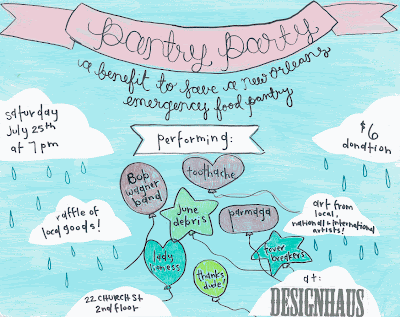 pantry party
a benefit to save a new orleans
emergency food pantry
saturday
july 25th
at 7 pm
performing:
$6
donation
Bob
wagner
band
toothache
june
debris!
parmaga
raffle of
local goods!
art from
local,
national & international
artists!
lady
fitness
thanks
dude!
fever
breakers!
22 CHURCH St
2nd floor
at:
DESIGNHAUS